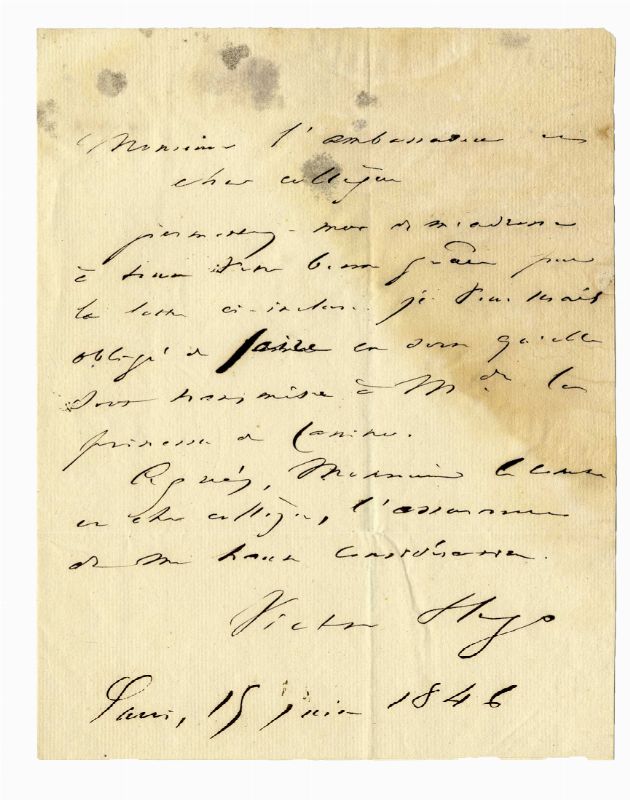 Monsieur l'ambassadeur et
cher collègue
permettez-moi de m'adresser
à toute votre bonne grâce pour
la lettre ci-incluse. je vous serais
obligé de faire en sorte qu'elle
soit transmise à Mde la
princesse de Canino.
Agréez, Monsieur le Comte
et cher collègue, l'assurance
de ma haute considération.
Victor Hugo
Paris, 15 juin 1846